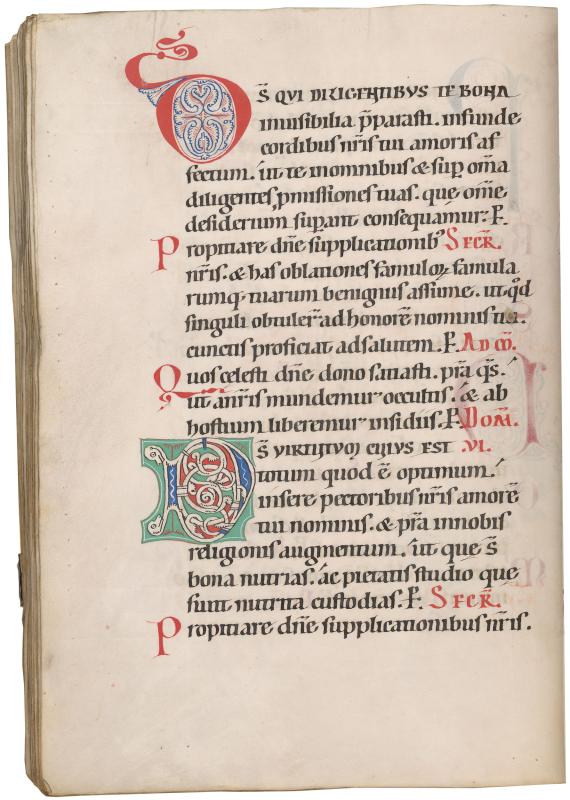 DS̄ QUI DILIGENTIBUS TE BONA
inuisibilia p̄parasti. infunde
cordibus nr̄is tui amoris af
fectum. ut te inomnibus & sup̱ om̄a
diligentes, p̱missiones tuas. que om̄e
desiderium sup̱ant consequamur. P̱.
Propitiare dn̄e supplicationib; SECR̄.
nr̄is. & has oblationes famuloꝝ famula
rumq; tuarum benignus assume. ut qd̄
singuli obtuler̄ ad honorē nominis tui.
cunctis proficiat ad salutem. P̱. AD CŌ.
Quos celesti dn̄e dono satiasti. pr̄a qs̄.
ut anr̄is mundemur occultis. & ab
hostium liberemur insidiis. P̱. DOM̄.
DS̄ VIRTUTUM CUIUS EST .VI.
totum quod ē optimum.
insere pectoribus nr̄is amorē
tui nominis. & pr̄a innobis
religionis augmentum. ut que s̄
bona nutrias. ac pietatis studio que
sunt nutrita custodias. P̱. SECR̄.
Propitiare dn̄e supplicationibus nr̄is.